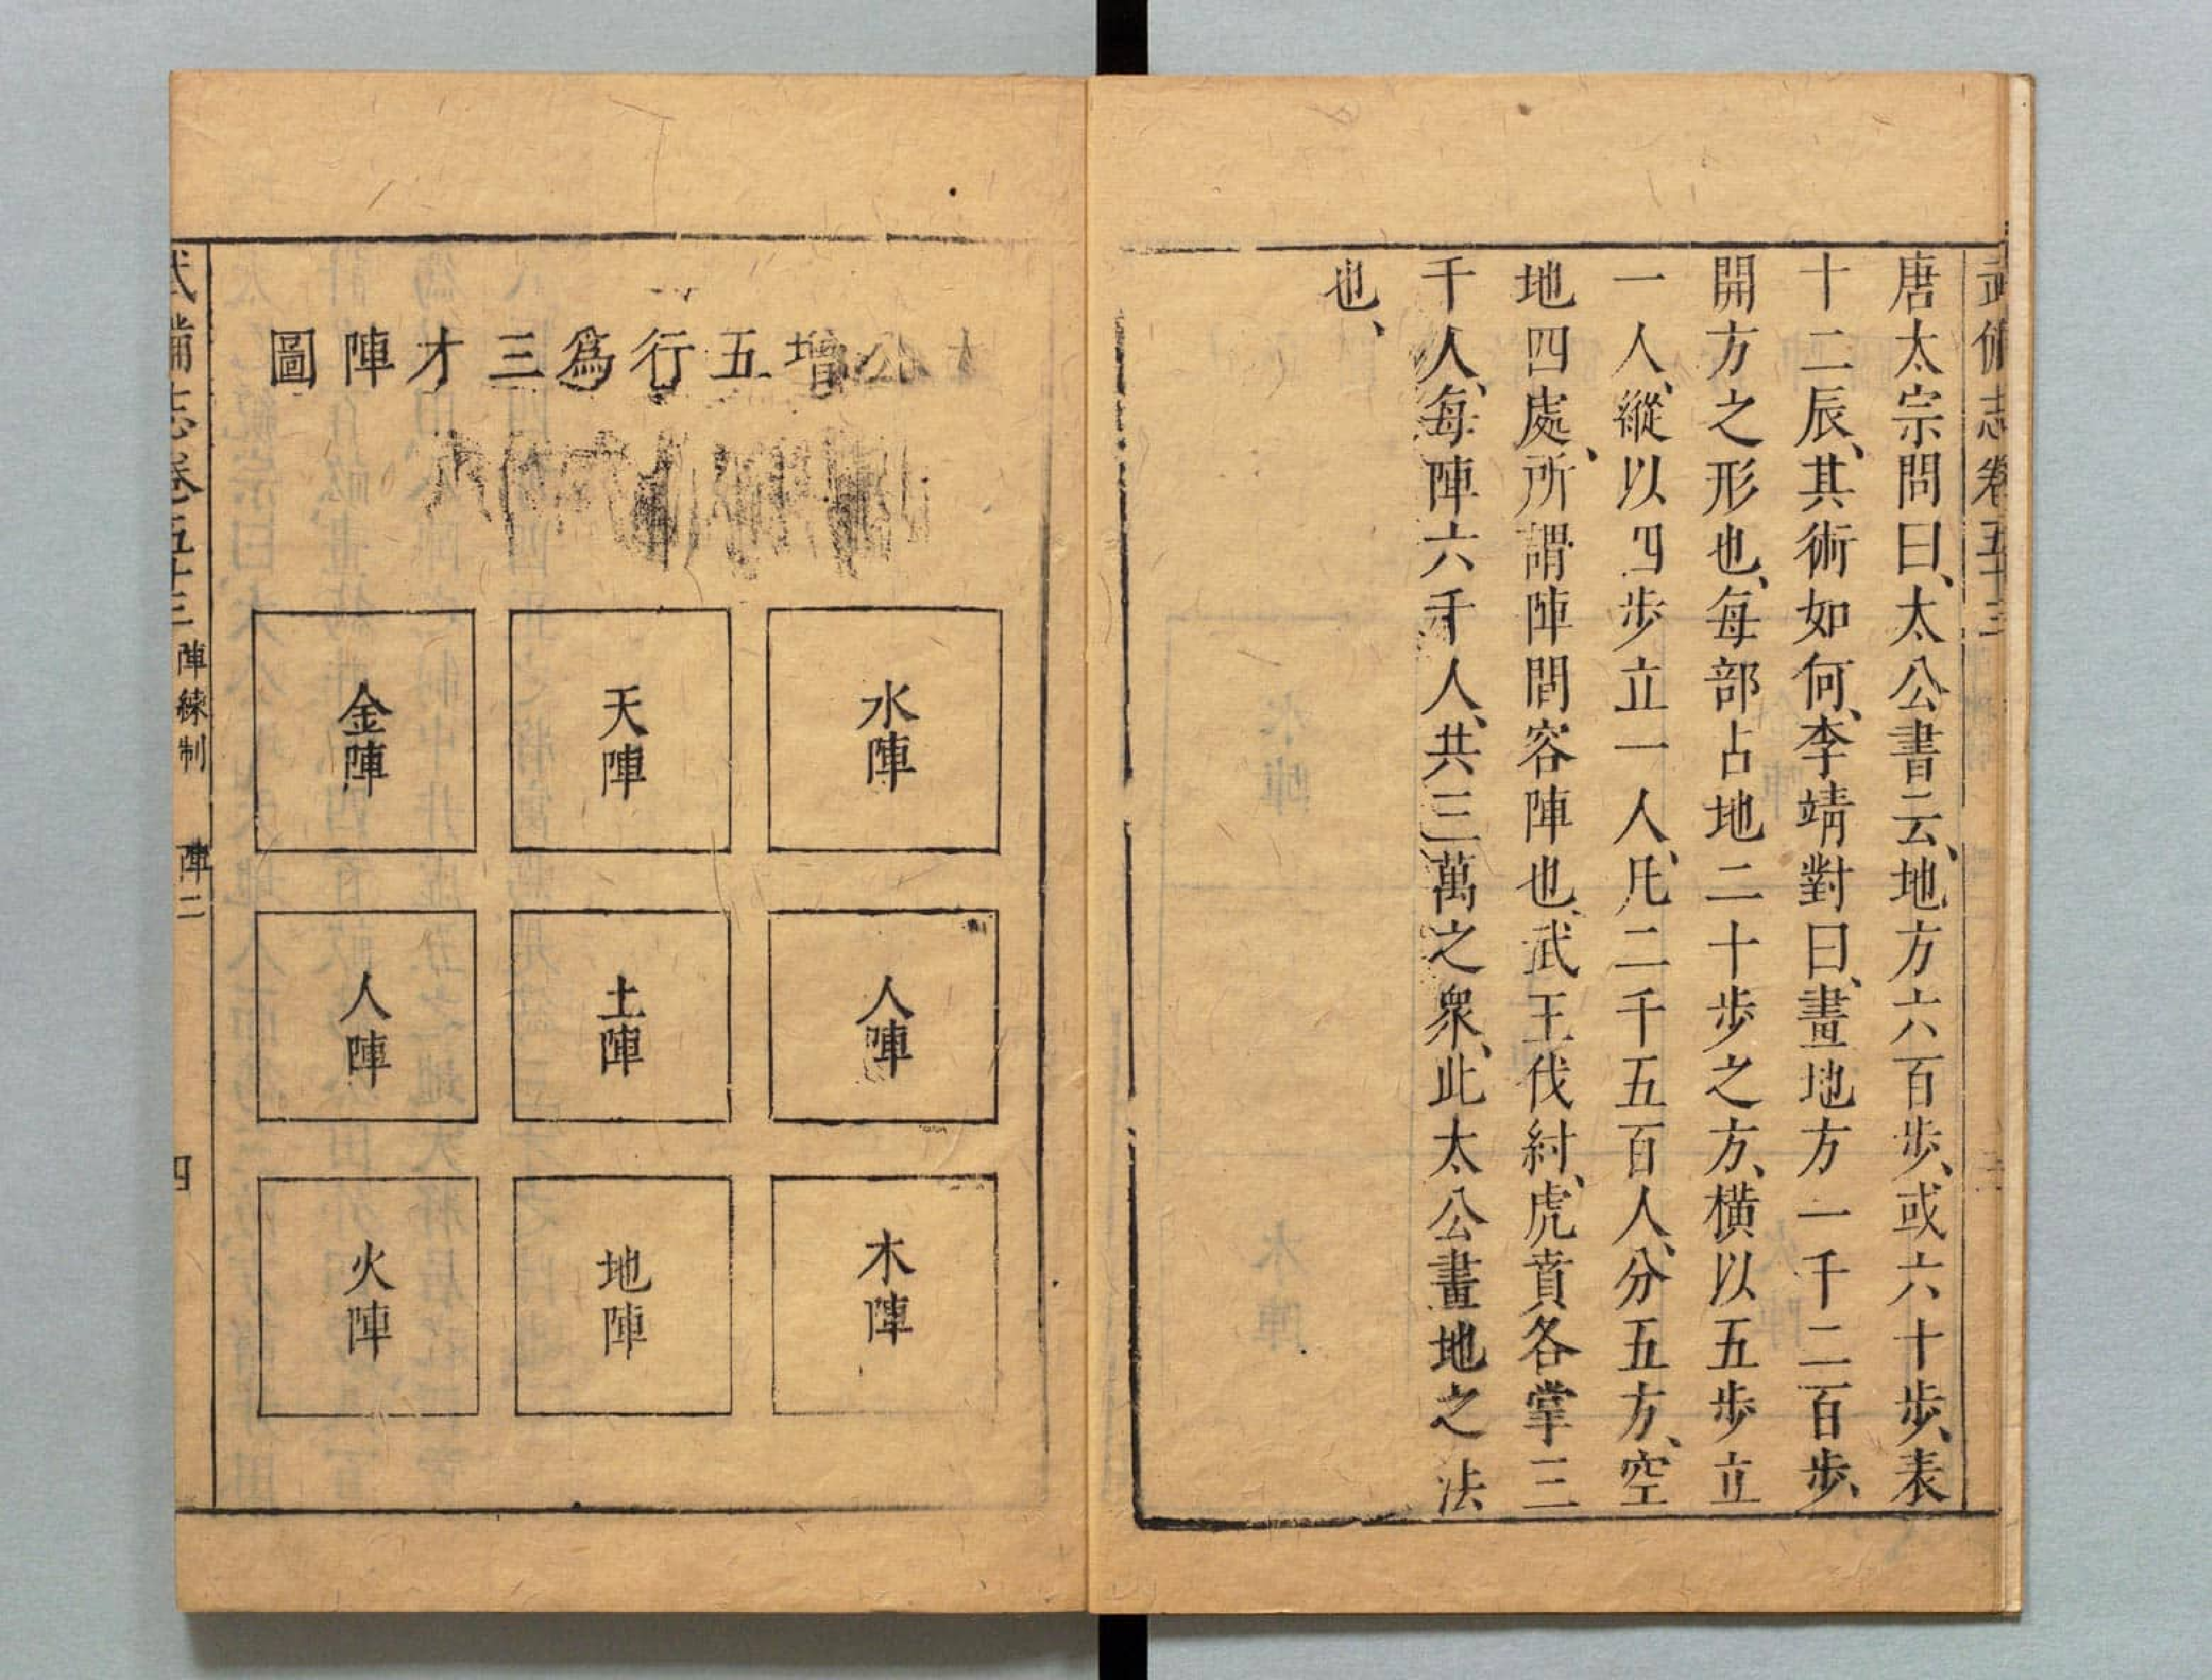 武備志卷五十三
唐太宗問曰、太公書云、地方六百步、或六十步、表
十二辰、其術如何、李靖對曰、畫地方一千二百步、
開方之形也、每部占地二十步之方、橫以五步立
一人、縱以四步立一人、凡二千五百人、分五方、空
地四處、所謂陣間容陣也、武王伐紂、虎賁各掌三
千人、每陣六千人、共三萬之衆、此太公畫地之法
也、
公增五行為三才陣圖
水陣
天陣
金陣
人陣
土陣
人陣
木陣
地陣
火陣
武備志卷五十三 陣練制 陣二 四